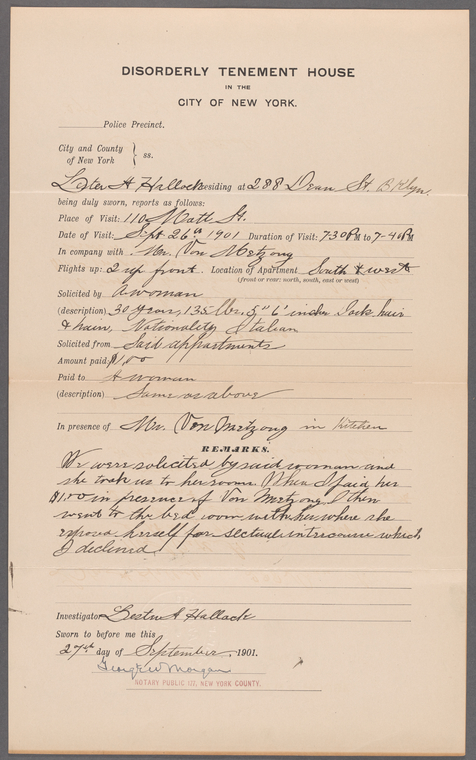 DISORDERLY TENEMENT HOUSE
IN THE
CITY OF NEW YORK.
Police Precinct.
City and County
of New York } ss.
Lester A Hallock residing at 288 Dean St. Bklyn.
being duly sworn, reports as follows:
Place of Visit: 110 Mott St.
Date of Visit: Sept. 26th 1901 Duration of Visit: 7-30 PM to 7-40 PM
In company with Mr. Von Metzong
Flights up: 2 up front. Location of Apartment South & west
(front or rear: north, south, east or west)
Solicited by a woman
(description) 30 years, 135 lbs. 5" 6' inches hair
& Nationality Italian
Solicited from Said appartments
Amount paid: $1.00
Paid to A woman
(description) Same as above
In presence of Mr. Von Metzong in Kitchen
REMARKS.
We were solicited by said woman and
she took us to her rooms. When I paid her
$1.00 in presence of Von Metzong I then
went to the bed room with her, where she
exposed herself for intercourse which
I declined.
Investigator Lester A Hallock
Sworn to before me this
27th day of September, 1901.
George W Morgan
NOTARY PUBLIC NEW YORK COUNTY.